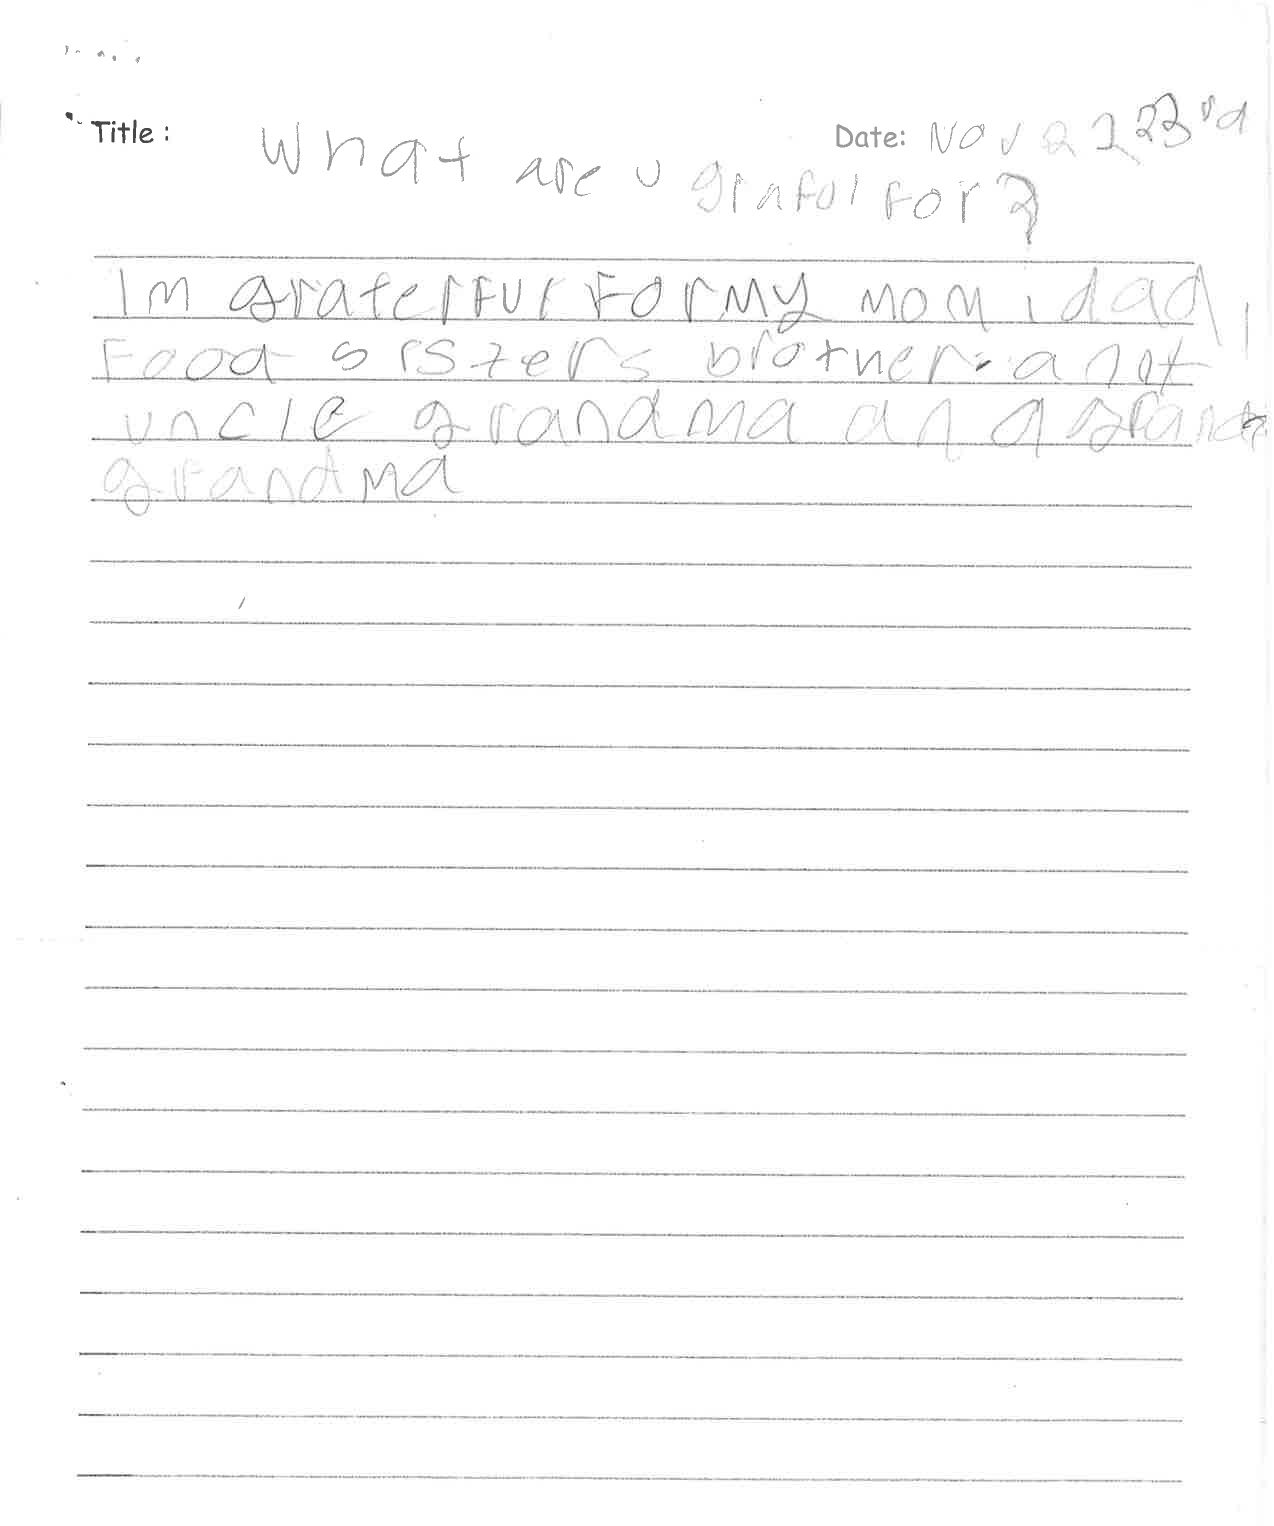 Title: What are u graful for?
Date: Nov 23rd
Im graterful for my mom, dad,
Food sisters brother ant
uncle grandma and grand
grandma